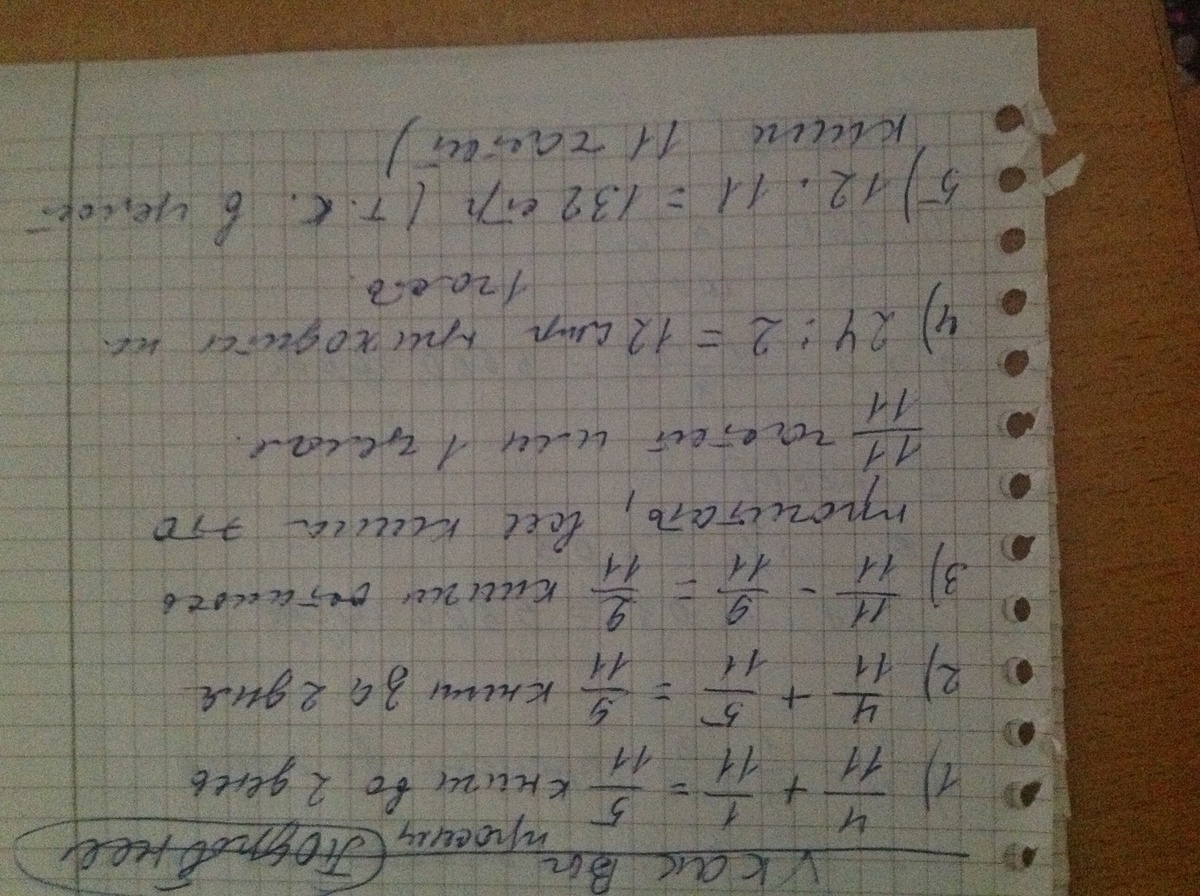 Как Вы просили Подробнее
1) 4/11 + 1/11 = 5/11 книги во 2 день
2) 4/11 + 5/11 = 9/11 книги за 2 дня
3) 11/11 - 9/11 = 2/11 книги осталось
прочитать, вся книга это
11/11 частей или 1 целая.
4) 24 : 2 = 12 стр приходится на
1 часть.
5) 12 · 11 = 132 стр (т.к. в целой
книги 11 частей)